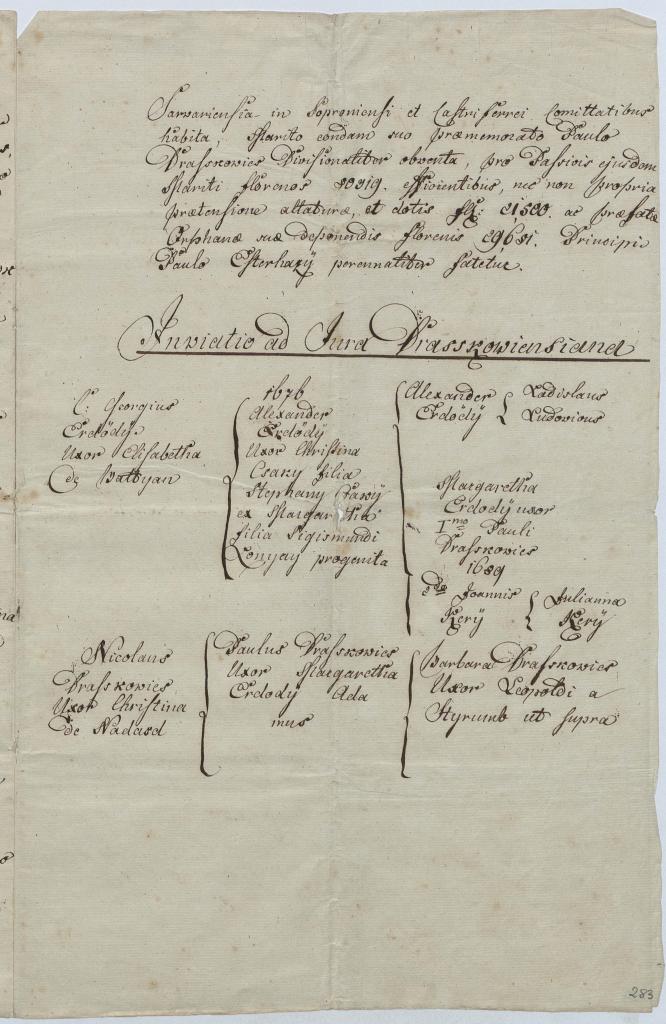 Sarvariensia in Soproniensi et Castriferrei Comittatibus
habita, Marito condam suo praememorato Paulo
Draskovics Divisionaliter obventa, pro Passivis ejusdem
Mariti florenos efficientibus, nec non propria
praetensione allaturae, et dotis ac praefatae
Orphanae suae deponendis florenis Principi
Paulo Esterhazÿ perennaliter fatetur.
Inviatio ad Jura Drasskoviensiana
C: Georgius
Erdödÿ
Uxor Elisabetha
de Battyan
1676
Alexander
Erdödÿ
Uxor Christina
Csaky filia
Stephany
ex Margaretha
filia Sigismundi
Lonyay progenita
Alexander
Erdödÿ
Ladislaus
Ludovicus
Margaretha
Erdodÿ uxor
Imo Pauli
Draskovics
1689
2do Joannis
Kerÿ
Julianna
Kerÿ
Nicolaus
Draskovics
Uxor Christina
de Nadasd
Paulus Draskovics
Uxor Margaretha
Erdödy Ada
mus
Barbara Draskovics
Uxor Leopoldi a
Styrumb ut supra
283